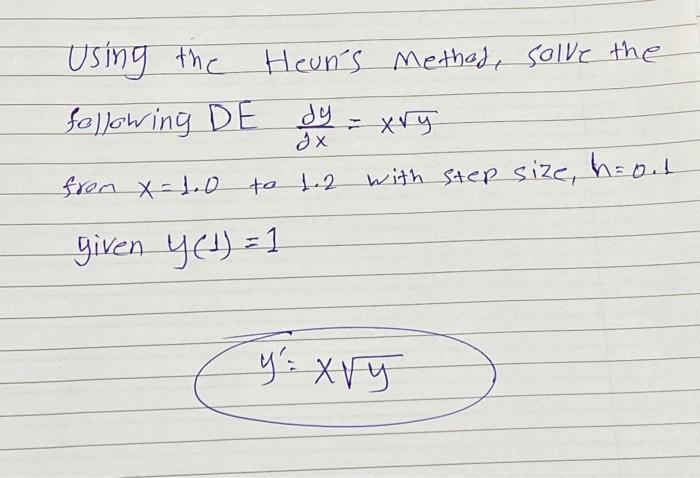 Using the Heun's Method, solve the
following DE dy/dx = x√y
from x = 1.0 to 1.2 with step size, h = 0.1
given y(1) = 1
y' = x√y